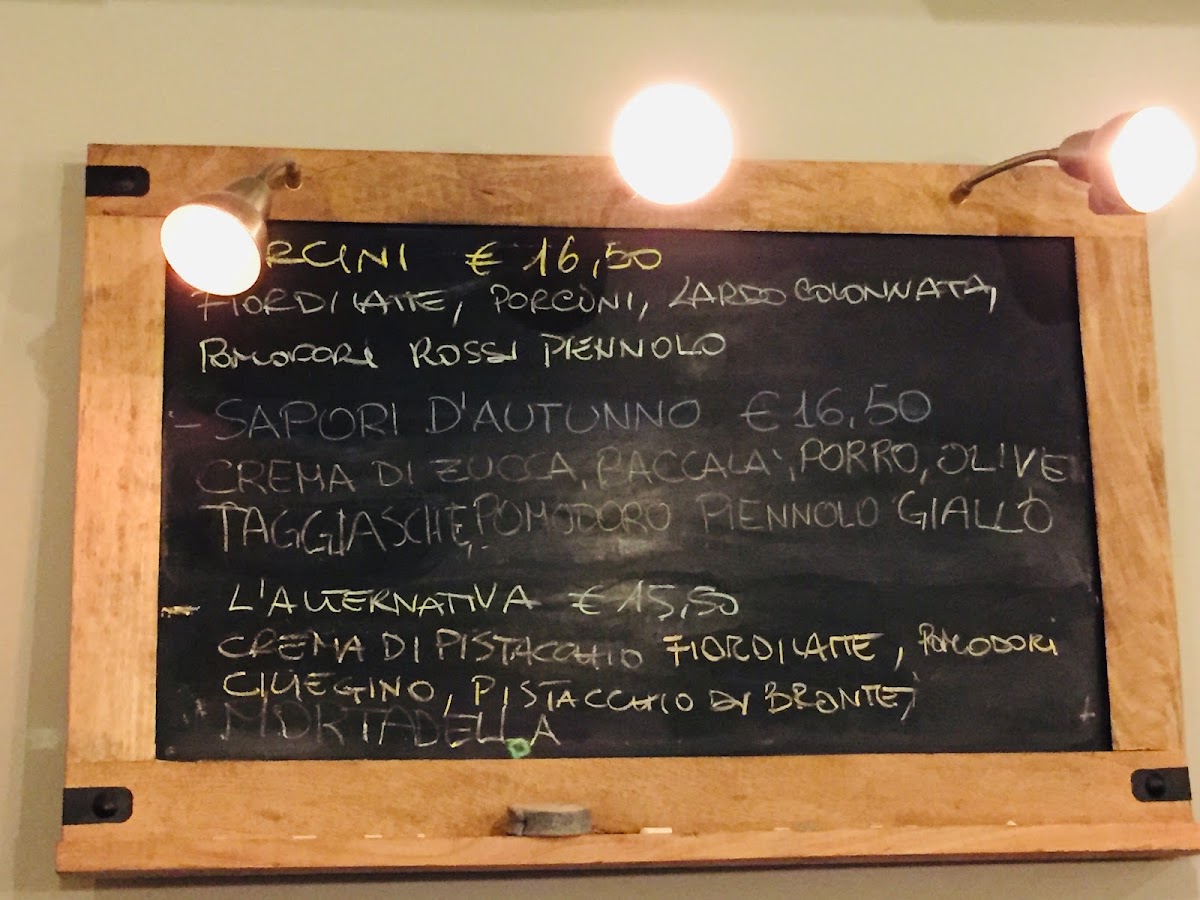 RCINI € 16,50
FIORDILATTE, PORCINI, LARDO COLONNATA,
POMODORI ROSSI PIENNOLO
- SAPORI D'AUTUNNO € 16,50
CREMA DI ZUCCA, BACCALA', PORRO, OLIVE
TAGGIASCHE, POMODORO PIENNOLO GIALLO
- L'ALTERNATIVA € 15,50
CREMA DI PISTACCHIO FIORDILATTE, POMODORI
CILIEGINO, PISTACCHIO DI BRONTE,
MORTADELLA